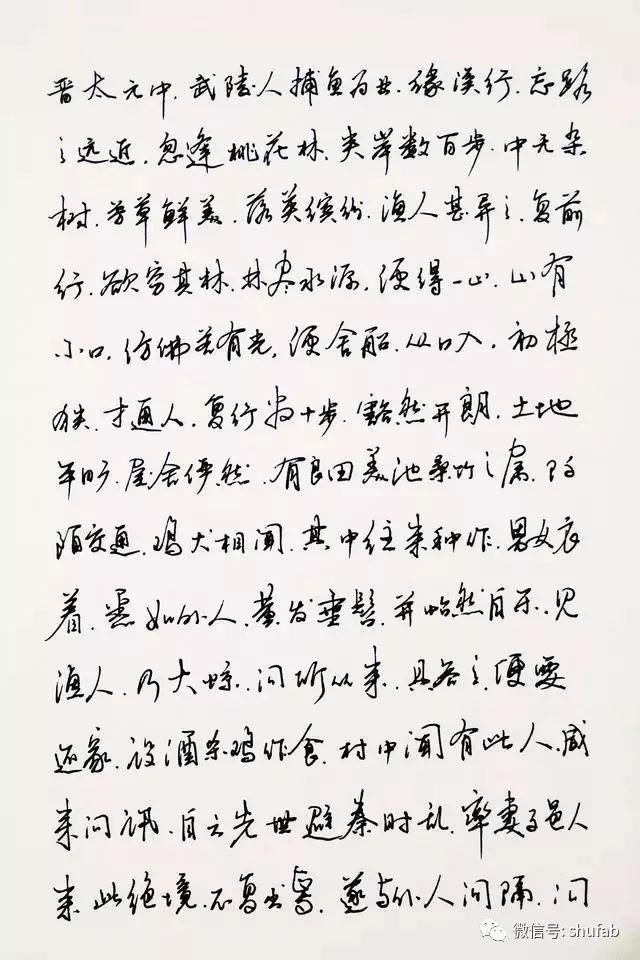 晋太元中.武陵人捕鱼为业.缘溪行.忘路
之远近.忽逢桃花林.夹岸数百步.中无杂
树.芳草鲜美.落英缤纷.渔人甚异之.复前
行.欲穷其林.林尽水源.便得一山.山有
小口.仿佛若有光.便舍船.从口入.初极
狭.才通人.复行数十步.豁然开朗.土地
平旷.屋舍俨然.有良田美池桑竹之属.阡
陌交通.鸡犬相闻.其中往来种作.男女衣
着.悉如外人.黄发垂髫.并怡然自乐.见
渔人.乃大惊.问所从来.具答之.便要
还家.设酒杀鸡作食.村中闻有此人.咸
来问讯.自云先世避秦时乱.率妻子邑人
来此绝境.不复出焉.遂与外人间隔.问
微信号: shufab